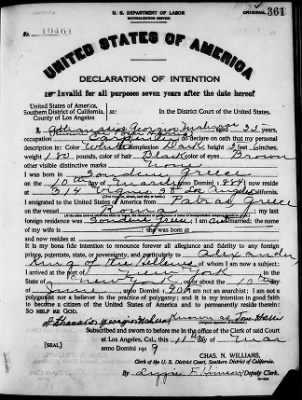 U. S. DEPARTMENT OF LABOR
NATURALIZATION SERVICE
ORIGINAL 361
No. 10461
UNITED STATES OF AMERICA
DECLARATION OF INTENTION
Invalid for all purposes seven years after the date hereof
United States of America,
Southern District of California, ss:
County of Los Angeles.
In the District Court of the United States.
I, aged years,
occupation do declare on oath that my personal
description is: Color White complexion Dark height feet inches,
weight 180 pounds, color of hair Black color of eyes Brown
other visible distinctive marks None
I was born in Greece
on the 10th day of anno Domini I now reside
at
I emigrated to the United States of America from Patras Greece
on the vessel my last
foreign residence was Greece I am married; the name
of my wife is she was born at
and now resides at
It is my bona fide intention to renounce forever all allegiance and fidelity to any foreign
prince, potentate, state, or sovereignty, and particularly to Alexander
King of the Hellenes of whom I am now a subject; I
arrived at the port of New York in the
State of New York on or about the 10th day
of June anno Domini I am not an anarchist; I am not a
polygamist nor a believer in the practice of polygamy; and it is my intention in good faith
to become a citizen of the United States of America and to permanently reside therein:
SO HELP ME GOD.
known as Tom
Subscribed and sworn to before me in the office of the Clerk of said Court
at Los Angeles, Cal., this 11th day of Mar
[SEAL] anno Domini 191 9
CHAS. N. WILLIAMS,
Clerk of the U. S. District Court, Southern District of California.
By Deputy Clerk.